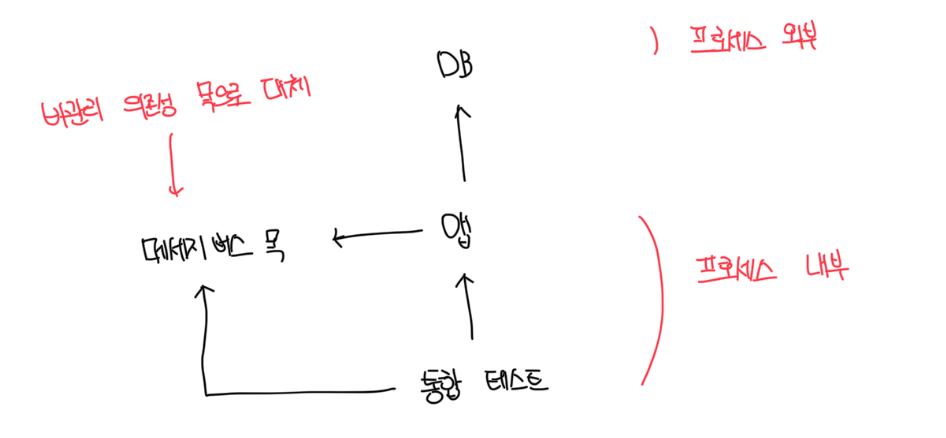 ) 프로세스 외부
DB
비관리 의존성 목으로 대체
메세지 버스 목
앱
프로세스 내부
통합 테스트